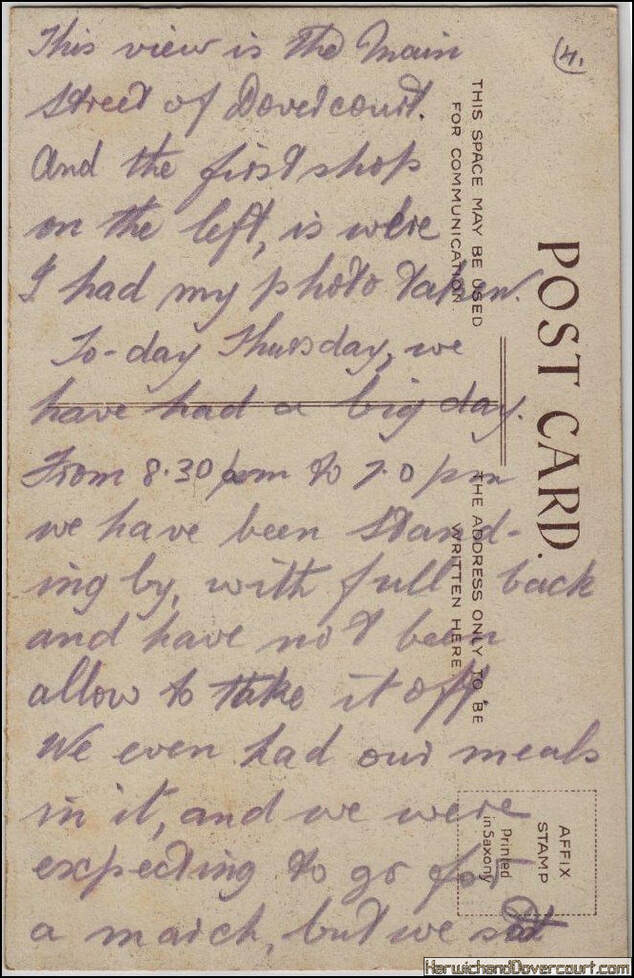 (4.
This view is the Main
Street of Dovercourt.
And the first shop
on the left, is were
I had my photo taken.
To-day Thursday, we
have had a big day.
From 8.30 pm to 7.0 pm
we have been stand-
ing by, with full back
and have not been
allow to take it off.
We even had our meals
in it, and we were
expecting to go for
a march, but we
POST CARD.
THIS SPACE MAY BE USED
FOR COMMUNICATION.
THE ADDRESS ONLY TO BE
WRITTEN HERE
AFFIX
STAMP
Printed
in Saxony
HarwichandDovercourt.com